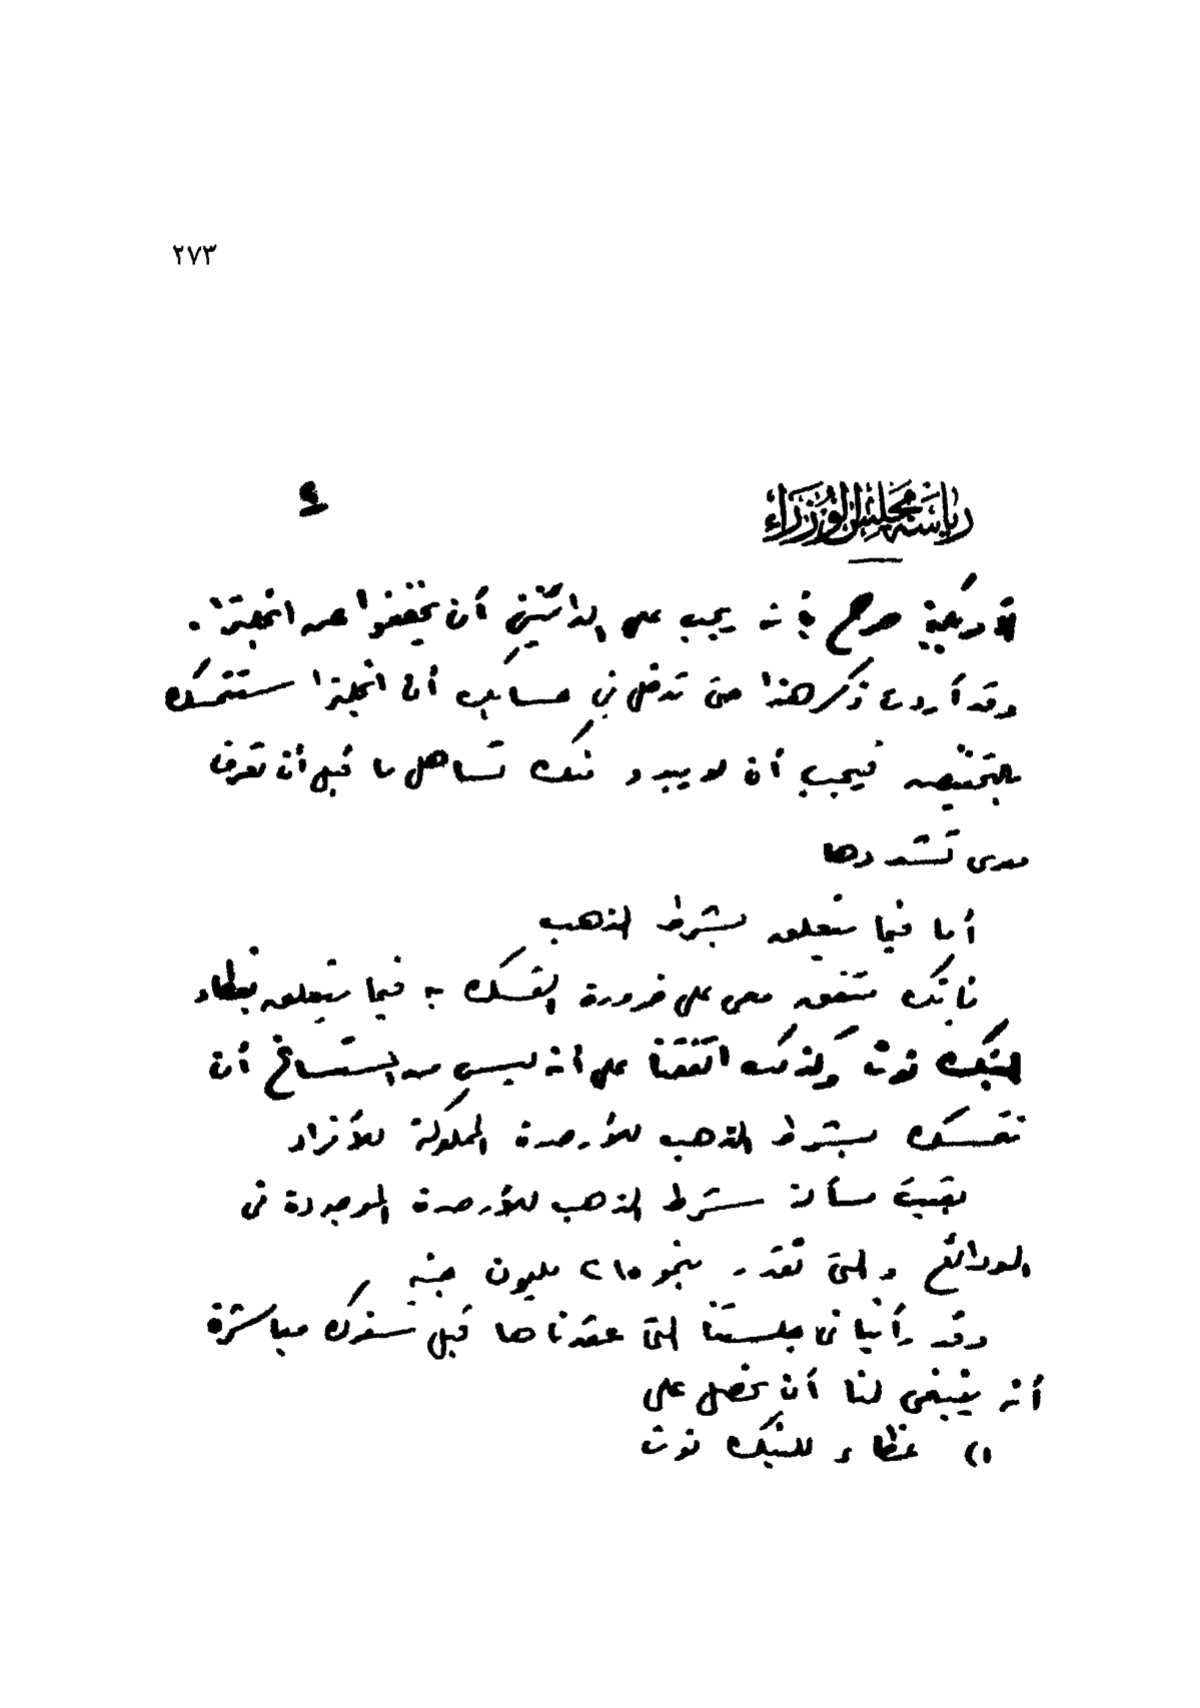 ٢٧٣
رياسة مجلس الوزراء
٤
الأمريكية صرح بأنه يجب على الدائنين أن يخففوا عن انجلترا.
وقد أردت ذكر هذا حتى تدخل في حسابك أن انجلترا ستتمسك
بالتخفيض فيجب أن لا يبدو منك تساهل ما قبل أن تعرف
مدى تشددها
أما فيما يتعلق بشرط الذهب
فانك متفق معى على ضرورة التمسك به فيما يتعلق بغطاء
البنك نوت وكذلك اتفقنا على أنه ليس من المستساغ أن
نتمسك بشرط الذهب للأرصدة المملوكة للأفراد
بقيت مسألة شرط الذهب للأرصدة الموجودة فى
الودائع والتى تقدر بنحو ٢١٥ مليون جنيه
وقد رأينا فى جلستنا التى عقدناها قبل سفرك مباشرة
أنه ينبغى لنا أن نحصل على
١) غطاء للبنك نوت